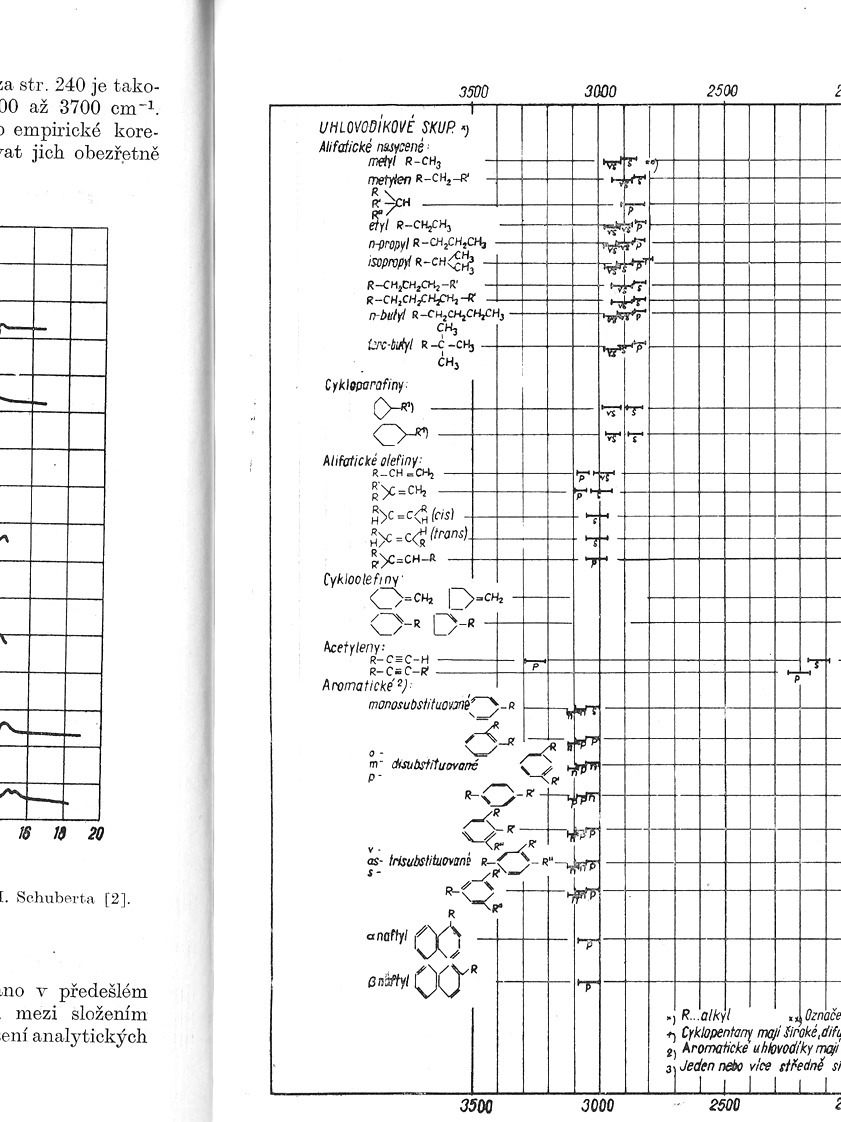 za str. 240 je tako-
00 až 3700 cm⁻¹.
o empirické kore-
vat jich obezřetně
16 18 20
I. Schuberta [2].
ano v předešlém
mezi složením
ení analytických
3500 3000 2500 2
UHLOVODÍKOVÉ SKUP. *)
Alifatické nasycené:
metyl R–CH₃ **)
vs s
metylen R–CH₂–R'
vs s
R
R' CH
R"
p
etyl R–CH₂CH₃
vs vs p
n-propyl R–CH₂CH₂CH₃
vs s p
isopropyl R–CH<CH₃ CH₃
vs s p
R–CH₂CH₂CH₂–R'
vs s
R–CH₂CH₂CH₂CH₂–R'
vs s
n-butyl R–CH₂CH₂CH₂CH₃
vs vs p
CH₃
terc-butyl R–C–CH₃
CH₃
vs s p
Cykloparafiny:
–R¹)
vs s
–R¹)
vs s
Alifatické olefiny:
R–CH=CH₂
p vs
R' R >C=CH₂
p s
R H >C=C< R H (cis)
s
R H >C=C< H R (trans)
s
R R' >C=CH–R
p
Cykloolefiny:
=CH₂ =CH₂
–R –R
Acetyleny:
R–C≡C–H
p s
R–C≡C–R'
p
Aromatické ²):
monosubstituované –R
R
–R'
o -
m - disubstituované
p -
R
R'
R– –R'
R
–R'
R"
v -
as- trisubstituované
s -
R– R' –R"
R– R' R"
α naftyl R
p
β naftyl R
p
*) R...alkyl **) Označe
1) Cyklopentany mají široké, difu
2) Aromatické uhlovodíky mají
3) Jeden nebo více středně si
3500 3000 2500 2